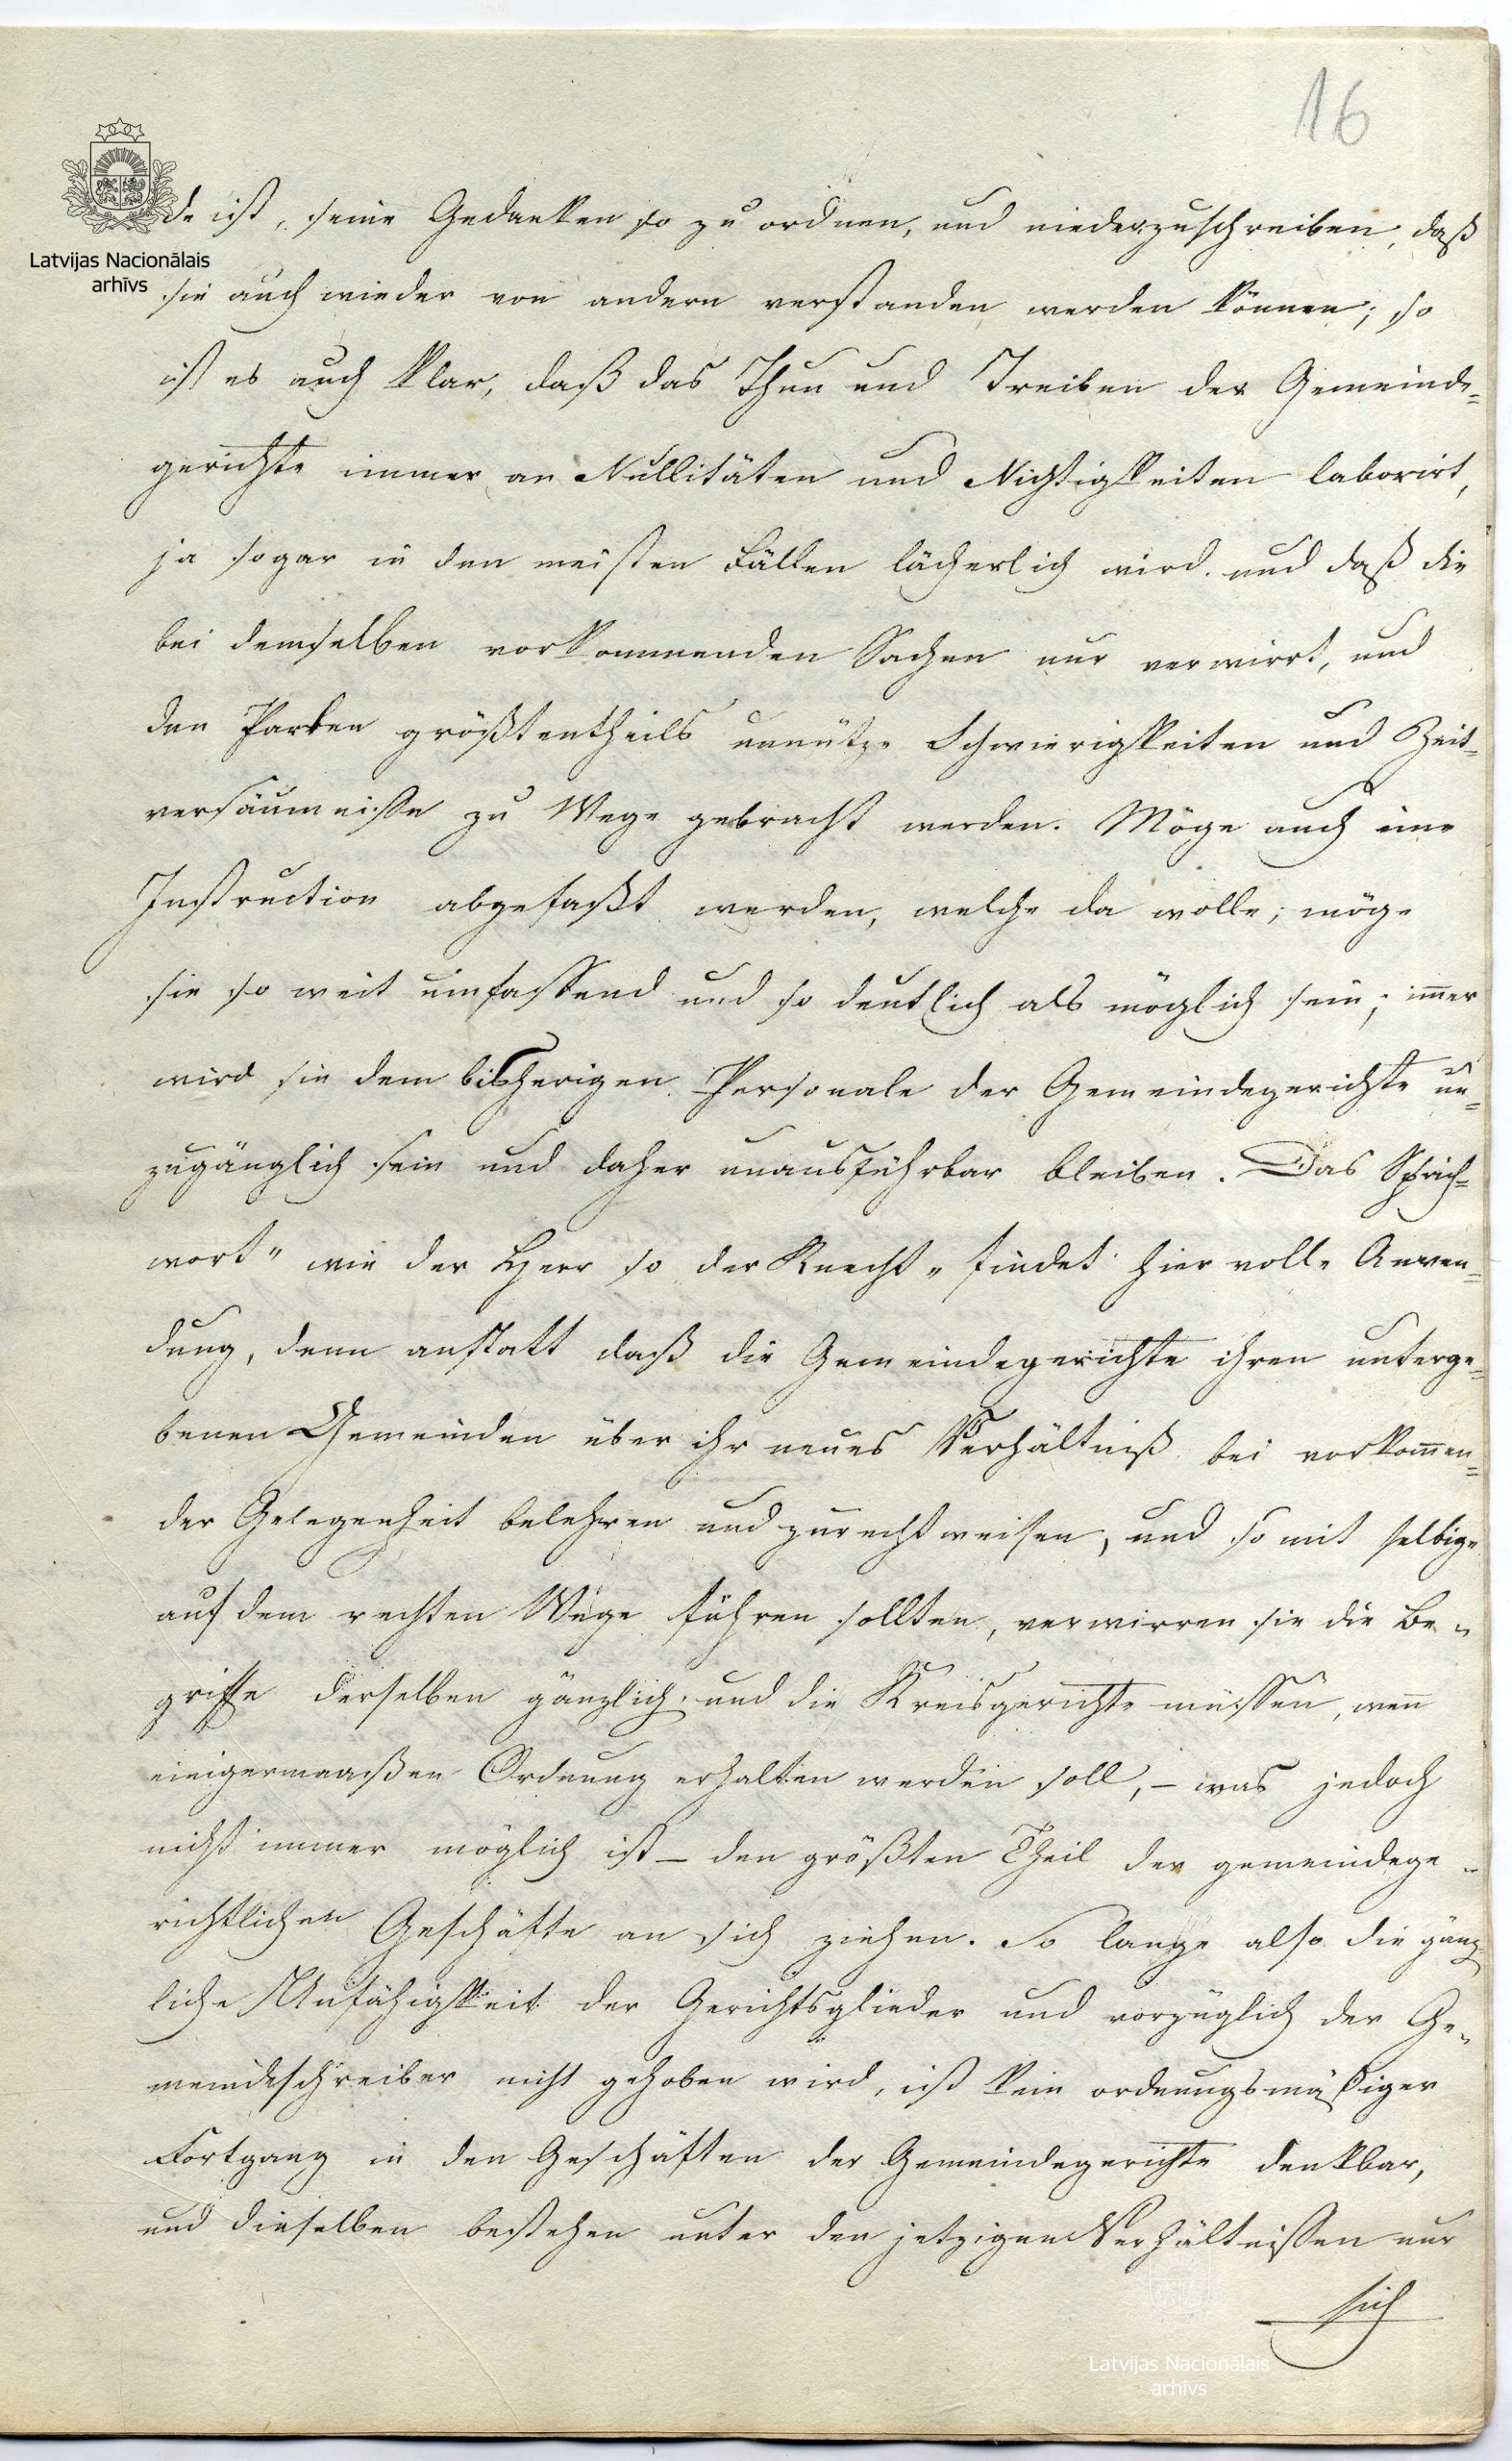 16
Latvijas Nacionālais
arhīvs
de ist, seine Gedanken so zu ordnen, und niederzuschreiben, daß
sie auch wieder von andern verstanden werden können; so
ist es auch klar, daß das Thun und Treiben der Gemeinde=
gerichte immer an Nullitäten und Nichtigkeiten laborirt,
ja sogar in den meisten Fällen lächerlich wird und daß die
bei demselben vorkommenden Sachen nur verwirrt, und
den Parten größtentheils unnütze Schwierigkeiten und Zeit=
versäumnisse zu Wege gebracht werden. Möge auch eine
Instruction abgefaßt werden, welche da wolle; möge
sie so weit umfassend und so deutlich als möglich sein; im̅er
wird sie dem bisherigen Personale der Gemeindegerichte un=
zugänglich sein und daher unausführbar bleiben. Das Sprich=
wort " wie der Herr so der Knecht " findet hier volle Anwen=
dung, denn anstatt daß die Gemeindegerichte ihren unterge=
benen Gemeinden über ihr neues Verhältniß bei vorkom̅en=
der Gelegenheit belehren und zurechtweisen, und somit selbige
auf dem rechten Wege führen sollten, verwirren sie die Be=
griffe derselben gänzlich, und die Kreisgerichte müssen, wen̅
einigermaaßen Ordnung erhalten werden soll, – was jedoch
nicht immer möglich ist – den größten Theil der gemeindege=
richtlichen Geschäfte an sich ziehen. So lange also die gänz
liche Unfähigkeit der Gerichtsglieder und vorzüglich der Ge=
meindeschreiber nicht gehoben wird, ist kein ordnungsmäßiger
Fortgang in den Geschäften der Gemeindegerichte denkbar,
und dieselben bestehen unter den jetzigen Verhältnissen nur
sich
Latvijas Nacionālais
arhīvs